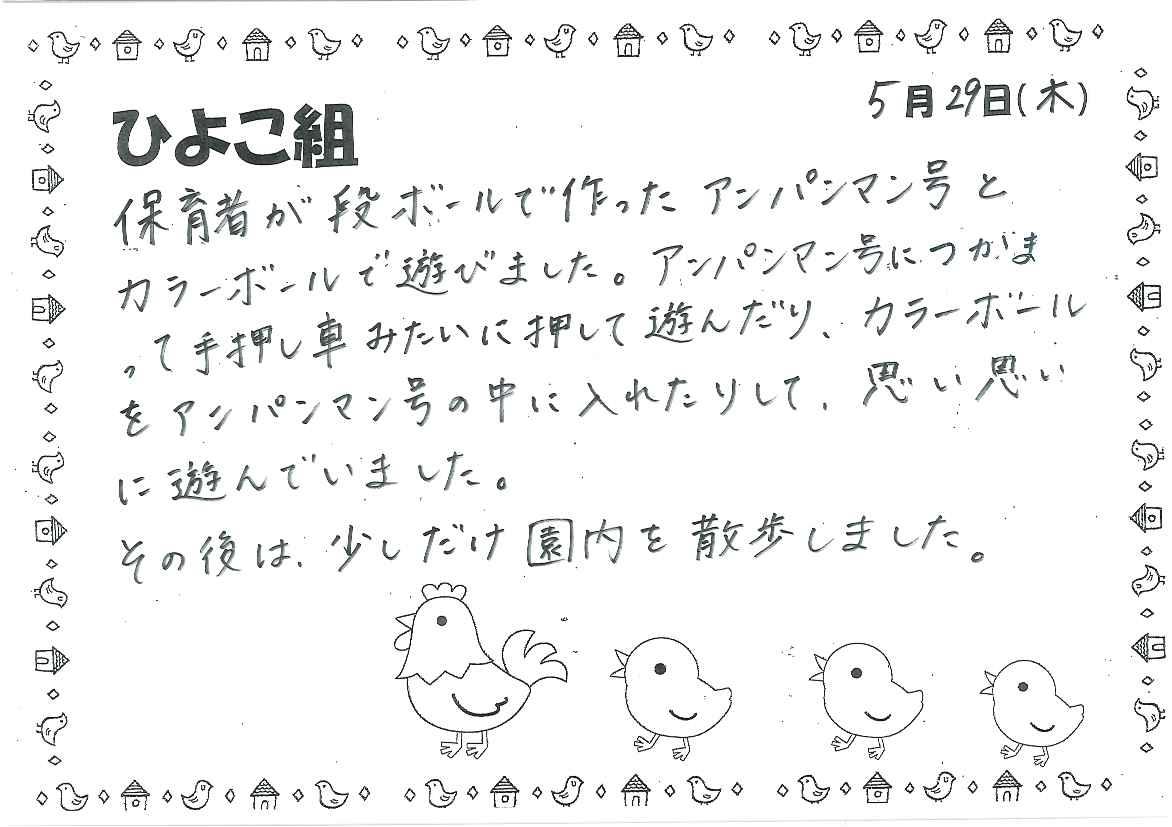 5月29日(木)
ひよこ組
保育者が段ボールで作ったアンパンマン号と
カラーボールで遊びました。アンパンマン号につかま
って手押し車みたいに押して遊んだり、カラーボール
をアンパンマン号の中に入れたりして、思い思い
に遊んでいました。
その後は、少しだけ園内を散歩しました。